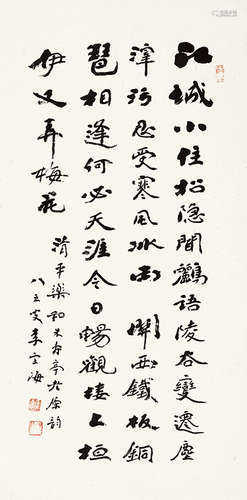 江城小住松隐聞鸝語陵谷變遷塵
滓污忍受寒風冰雨關西鐵板銅
琶相逢何必天涯今日暢觀樓上桓
伊又弄梅花
清平樂和亭老原韵
八五叟李海